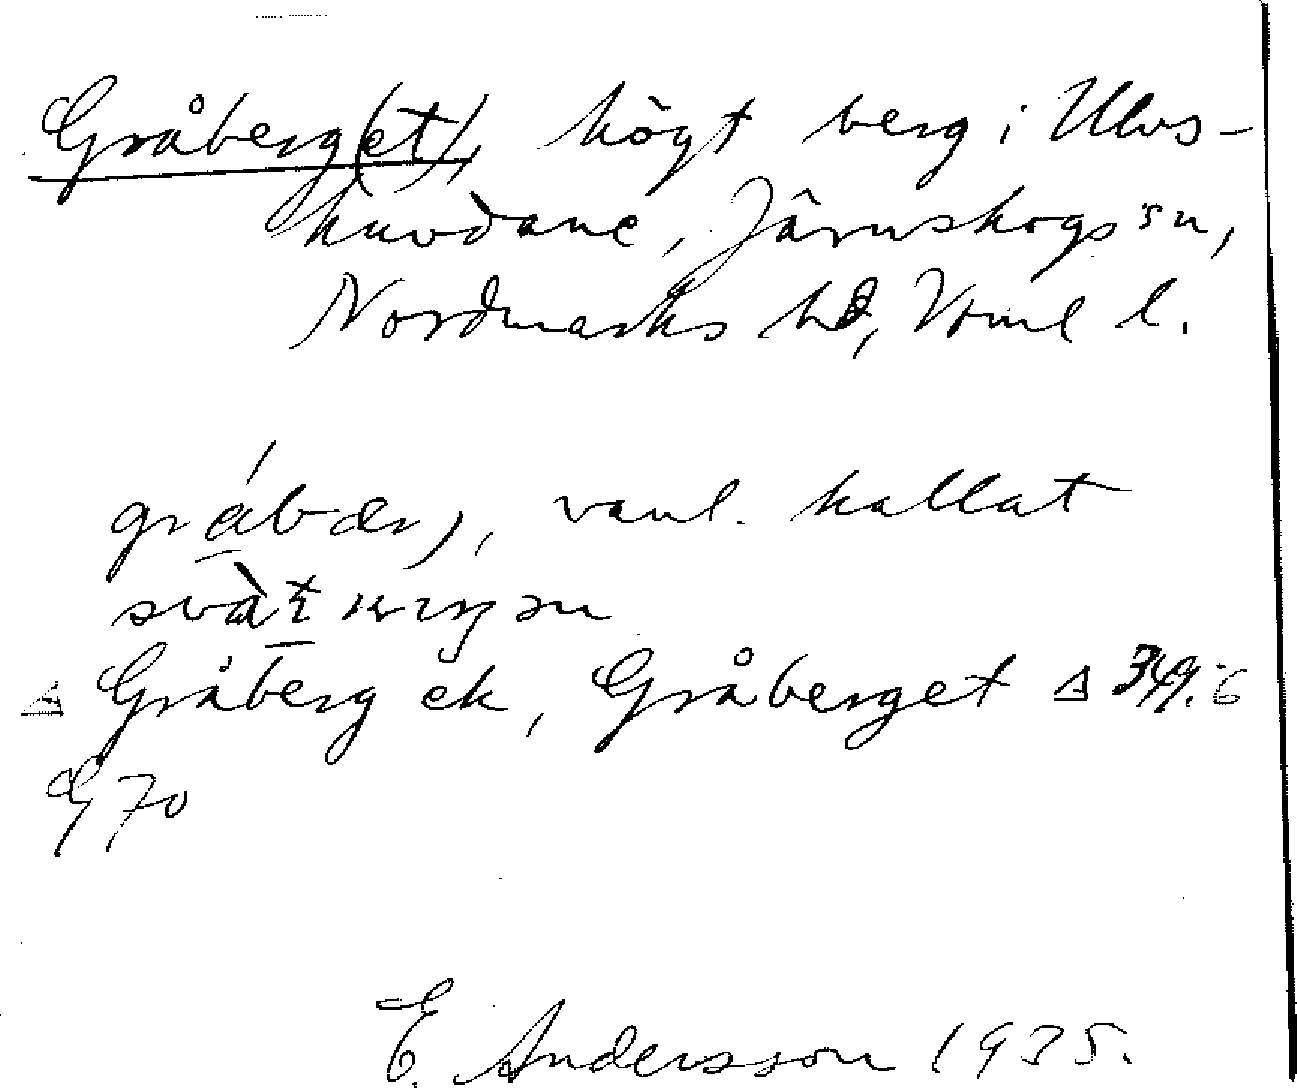 Gråberg(et), högt berg i Ulvs-
huvdane, Järnskogs sn,
Nordmarks hd, Vrml l.
vanl. kallat
Gråberg ek, Gråberget Δ 349.6
G 70
E. Andersson 1935.